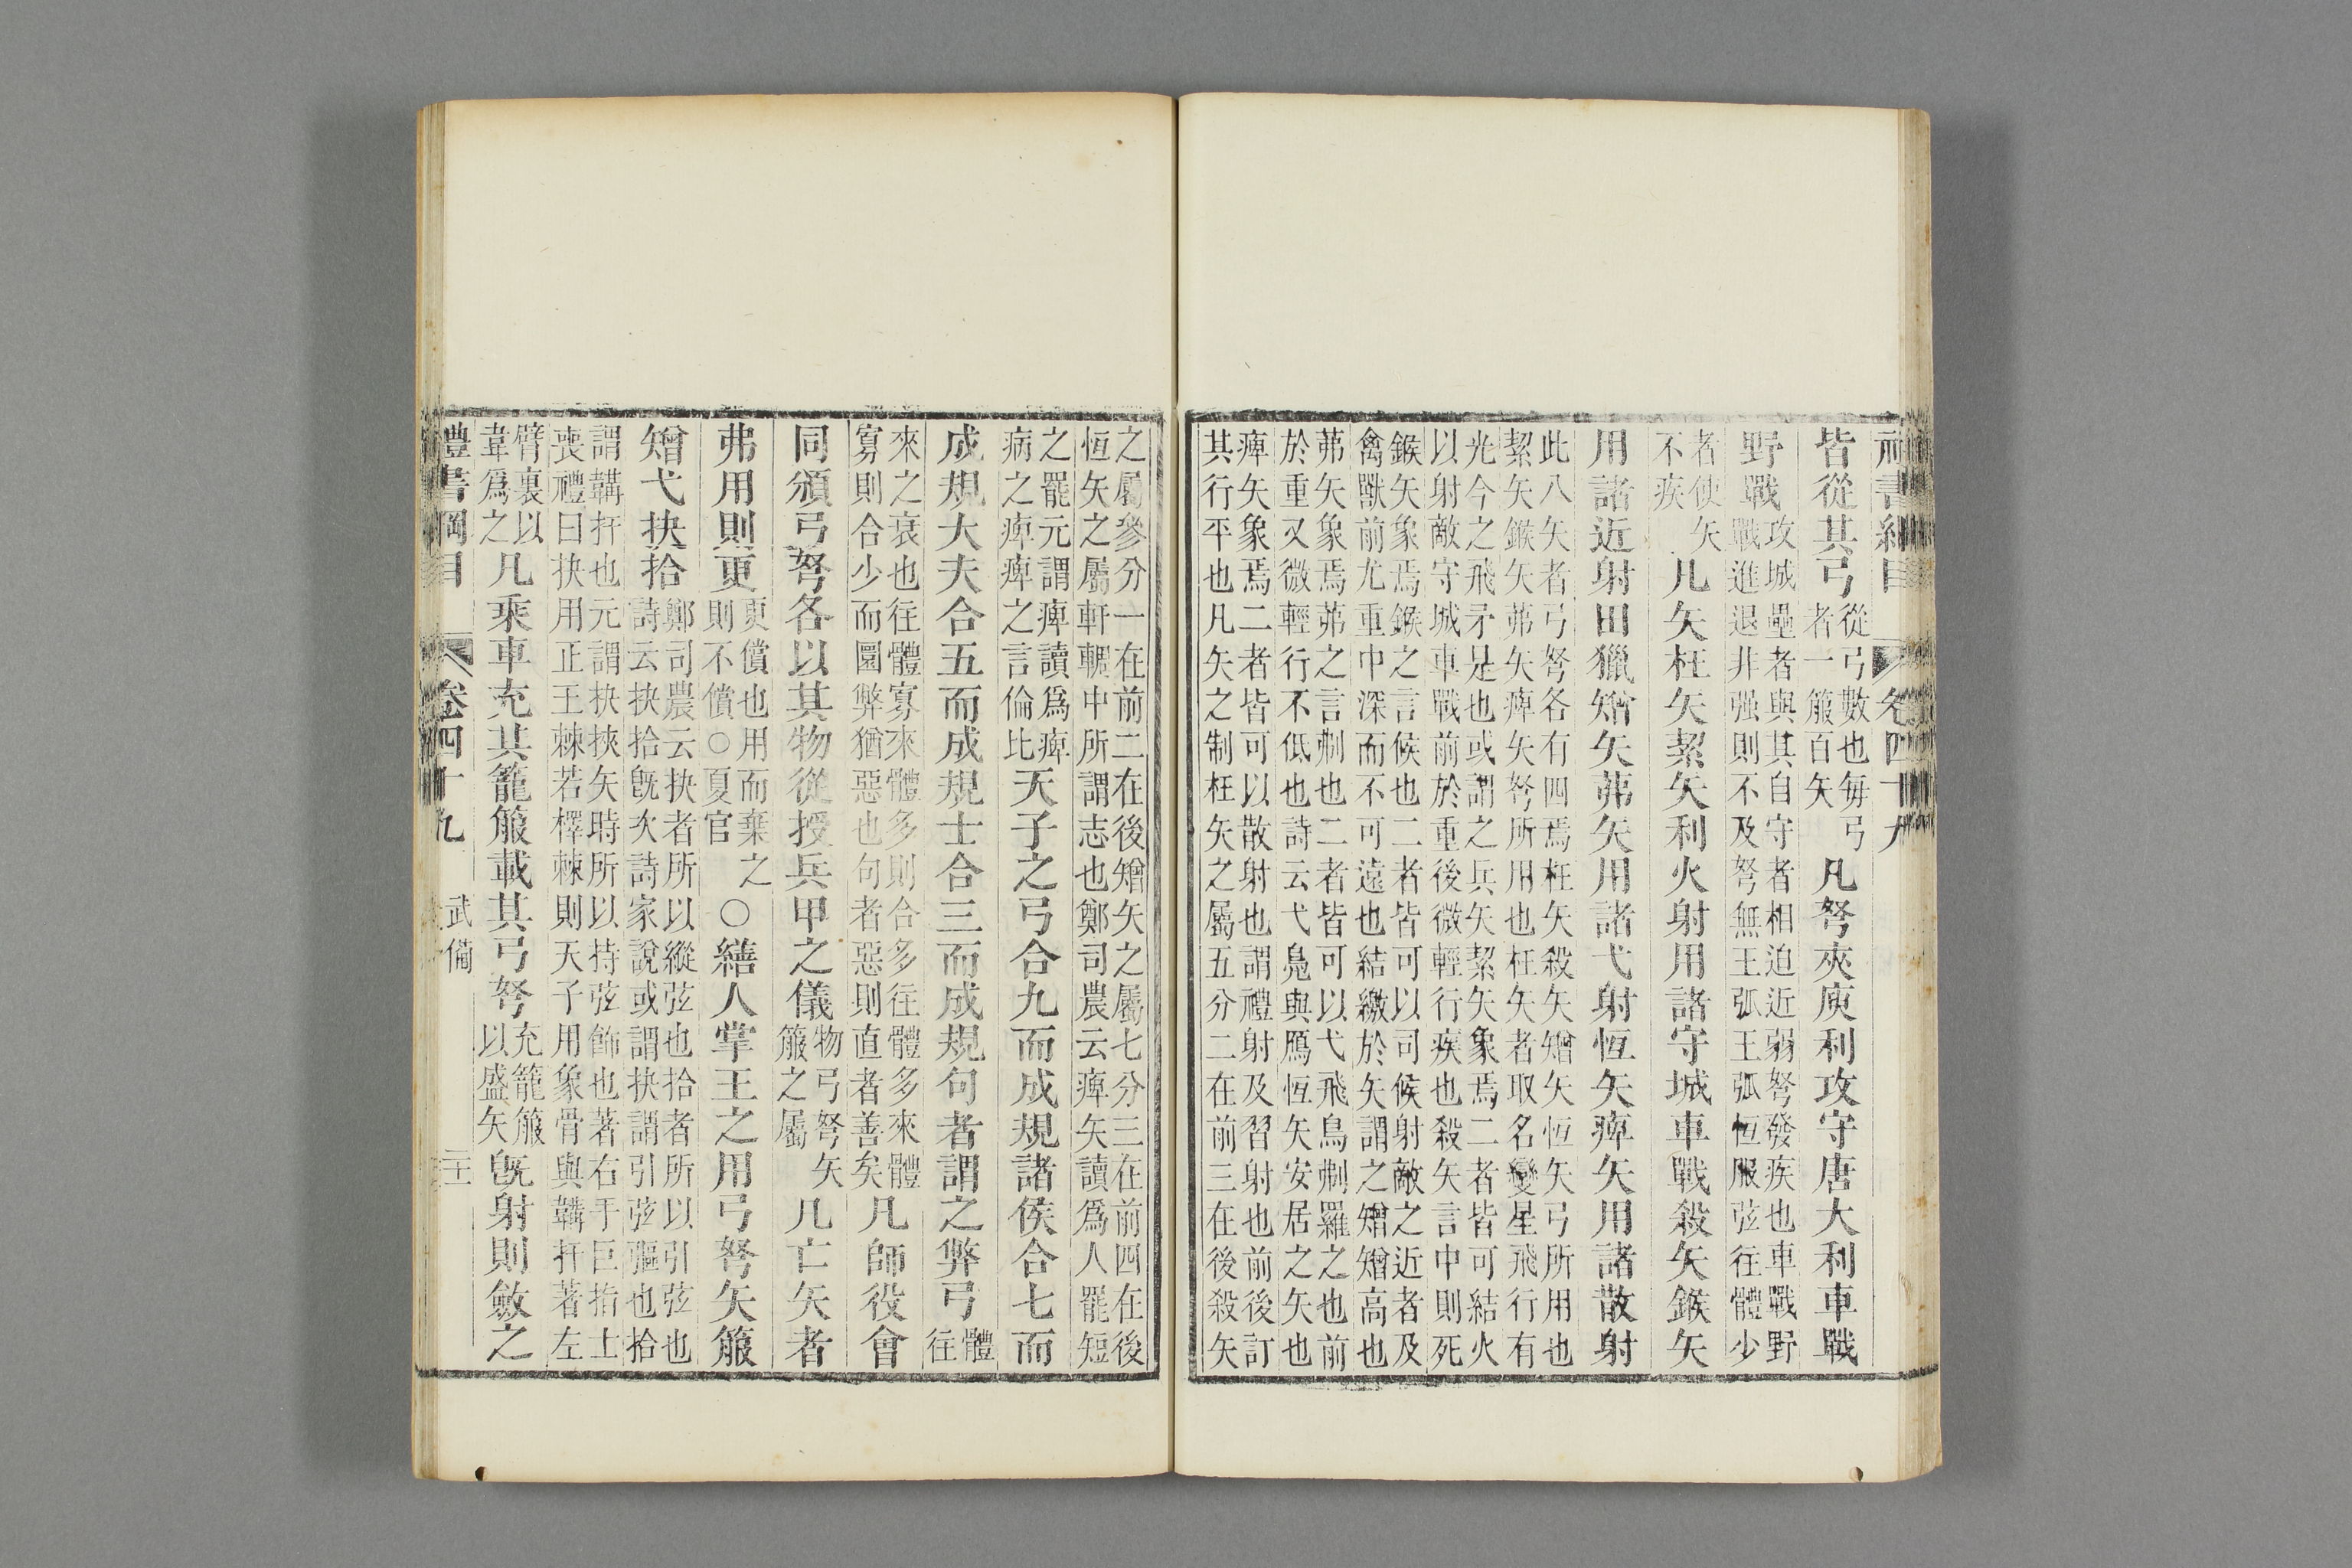 禮書綱目 卷四十九
皆從其弓從弓數也每弓者一箙百矢凡弩夾庾利攻守唐大利車戰
野戰攻城壘者與其自守者相迫近弱弩發疾也車戰野戰進退非强則不及弩無王弧王弧恒服弦往體少
者使矢不疾凡矢枉矢絜矢利火射用諸守城車戰殺矢鍭矢
用諸近射田獵矰矢茀矢用諸弋射恒矢痺矢用諸散射
此八矢者弓弩各有四焉枉矢殺矢矰矢恒矢弓所用也
絜矢鍭矢茀矢痺矢弩所用也枉矢者取名變星飛行有
光今之飛矛是也或謂之兵矢絜矢象焉二者皆可結火
以射敵守城車戰前於重後微輕行疾也殺矢言中則死
鍭矢象焉鍭之言候也二者皆可以司候射敵之近者及
禽獸前尤重中深而不可遠也結繳於矢謂之矰矰高也
茀矢象焉茀之言刜也二者皆可以弋飛鳥刜羅之也前
於重又微輕行不低也詩云弋鳧與鴈恒矢安居之矢也
痺矢象焉二者皆可以散射也謂禮射及習射也前後訂
其行平也凡矢之制枉矢之屬五分二在前三在後殺矢
之屬參分一在前二在後矰矢之屬七分三在前四在後
恒矢之屬軒輖中所謂志也鄭司農云痺矢讀爲人罷短
之罷元謂痺讀爲痺病之痺痺之言倫比天子之弓合九而成規諸侯合七而
成規大夫合五而成規士合三而成規句者謂之弊弓體往
來之衰也往體寡來體多則合多往體多來體寡則合少而圜弊猶惡也句者惡則直者善矣凡師役會
同頒弓弩各以其物從授兵甲之儀物弓弩矢箙之屬凡亡矢者
弗用則更更償也用而棄之則不償○夏官○繕人掌王之用弓弩矢箙
矰弋抉拾鄭司農云抉者所以縱弦也拾者所以引弦也詩云抉拾旣次詩家說或謂抉謂引弦彄也拾
謂韝扞也元謂抉挾矢時所以持弦飾也著右手巨指士
喪禮曰抉用正王棘若檡棘則天子用象骨與韝扞著左
臂裏以韋爲之凡乘車充其籠箙載其弓弩充籠箙以盛矢旣射則斂之
禮書綱目 卷四十九 武備